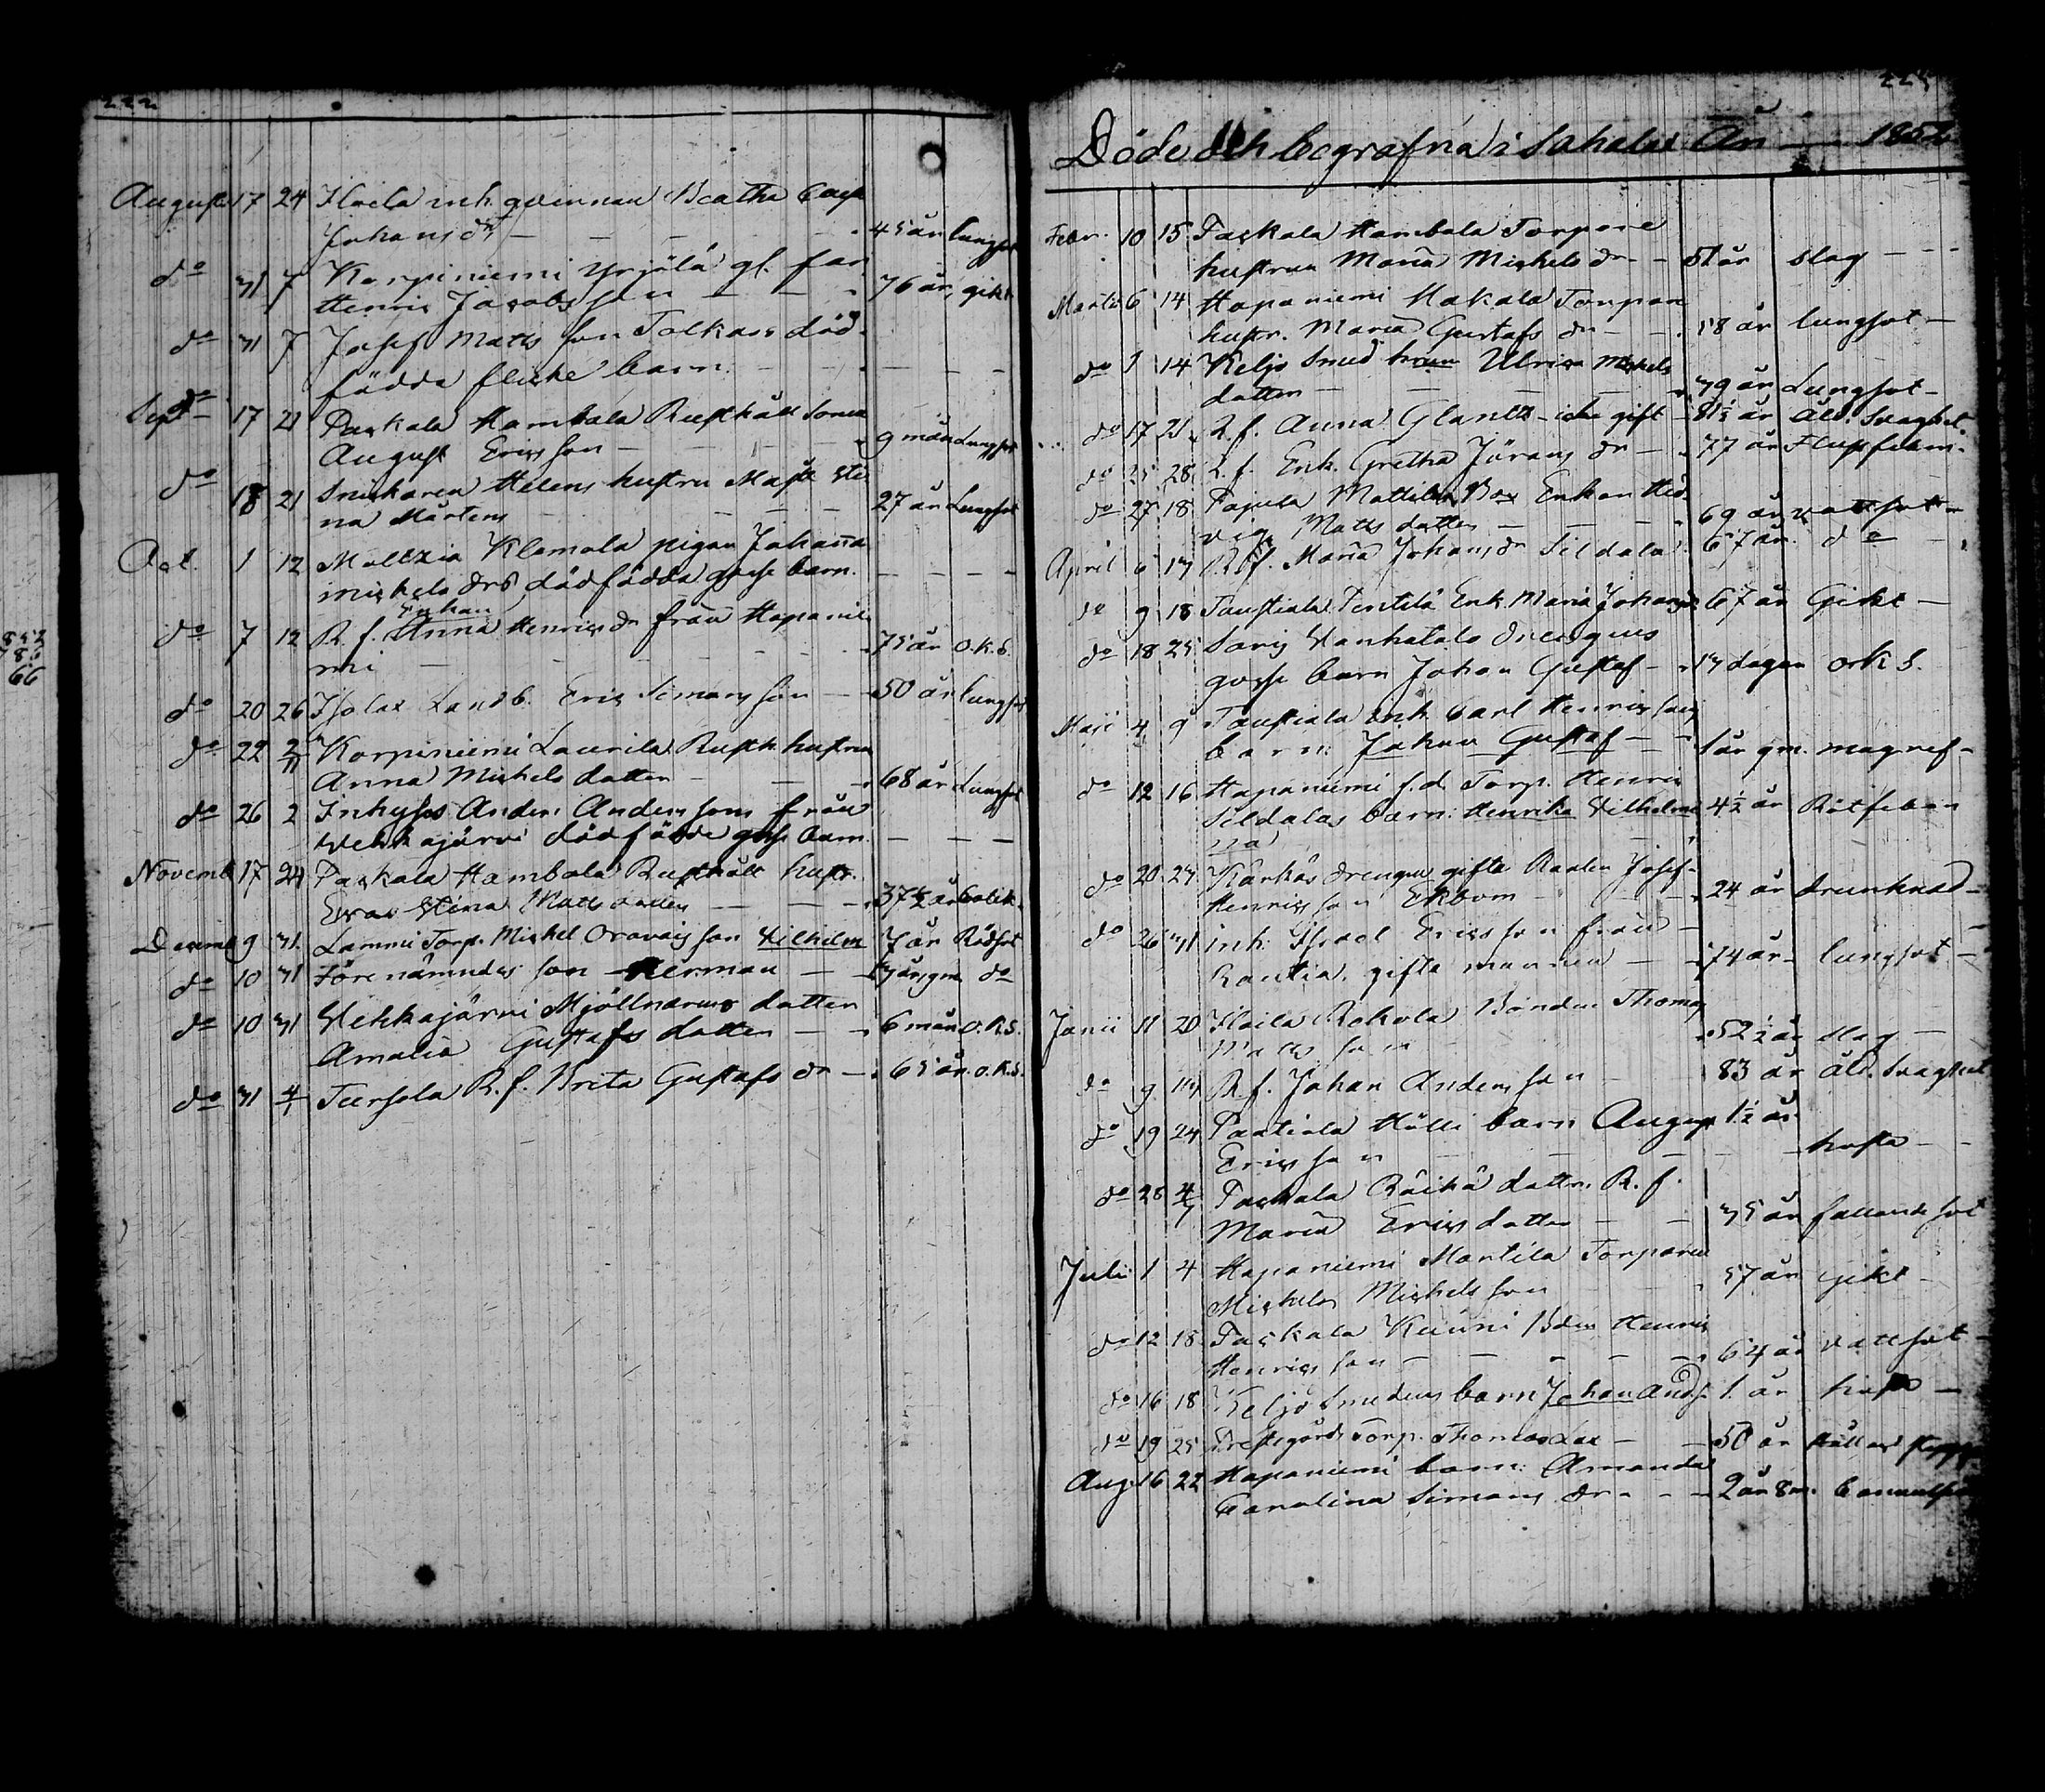 222
Augusti 17 24 Iloila inh. qvinnan Beatha Caisa
Johans dr 45 år lungsot
do 31 7 Korpiniemi Yrjölä gl. far
Henric Jacobs son 76 år gikt
do 31 7 Josef Matts son Tolkass död-
födda flicke barn
Sept 17 21 Paskala Hambala Rusthåll. sonen
August Ericsson 9 mån Lungsot
do 18 21 Snickaren Helens hustru Maja Sti
na Mårtens 27 år Lungsot
Oct. 1 12 Moltzia Klemola pigan Johanna
Michels drs dödfödda gosse barn.
Enkan
do 7 12 R. f. Anna Henrics dr från Haponie
mi 75 år o.k.s.
do 20 26 Isolax Landb. Eric Simons son 50 år lungsot
do 22 2/11 Korpiniemi Laurila Rusth. hustru
Anna Michels dotter 68 år Lungsot
do 26 2 Inhyses Anders Anderssons från
Vehkajärvi dödfödde gosse barn
Novemb 17 24 Paskala Hambala Rusthåll. hustr.
Eva Stina Matts dotter 37 1/2 år Colik
Decemb 9 31. Lammi Torp. Michel Oravais son Vilhelm 7 år Rödsot
do 10 31 Förenämndes son Herman 3 år 9 m do
do 10 31 Vehkajärvi Mjöllnarens dotter
Amalia Gustafs dotter 6 mån o.k.s.
do 31 4/1 Tursola R. f. Brita Gustafs dr 65 år o.k.s.
Döde och begrafna i Sahalax År 1852
Febr. 10 15 Paskala Hambala Torpare
hustrun Maria Michels dr 51 år slag
Martii 6 14 Haponiemi Makala Torpare
hustr. Maria Gustafs dr 58 år lungsot
do 9 14 Keljo Smed hrun Ulrica Michels
dotter 39 år Lungsot
do 17 21 R. f. Anna Glantz icke gift 81 1/2 år Åld. svaghet.
do 25 28 R. f. Enk. Gretha Jörans dr 77 år Flussfeber.
do 27 18 Pajula Mattila Enkan Hed
vig Matts dotter 69 år vattsot
April 6 13 R. f. Maria Johans dr Sildala 67 år do
do 9 18 Taustiala Penttilä Enk. Maria Johansdr 67 år Gikt
do 18 25 Saris Vanhatalo drengens
gosse barn Johan Gustaf 13 dagar ok s.
Maji 4 9 Taustiala inh. Carl Henrics sons
barn: Johan Gustaf 1 år 9 m. magref
do 12 16 Haponiemi f.d. Torp. Henric
Sildalas barn: Henrika Vilhelmi
na 4 1/2 år Rötfeber
do 20 23 Kärkäs drengen gifte Karlen Josef
Henrics son Ekbom 24 år drunknad
do 26 31 inh. Israel Erics son från
Rautia gifte mannen 74 år lungsot
Junii 11 20 Iloila Rekola Bonden Thomas
Matts son 52 1/2 år slag
do 9 13 R. f. Johan Anders son 83 år åld. svaghet
do 19 24 Pastiala Hölli barn August
Erics son 1 1/2 år hosta
do 28 4/7 Paskala Räikä dottr. R. f.
Maria Erics dotter 35 år fallandesot
Julii 1 4 Haponiemi Martila Torparen
Michel Michels son 57 år gikt
do 12 18 Paskala Kuuni Bden Henric
Henrics son 64 år vattsot
do 16 18 Keljo Smedens barn Johan Ands. 1 år hosta
do 19 25 Prestgårds Torp. Thomas Lax 50 år
Aug. 16 22 Haponiemi barn: Amanda
Carolina Simons dr 2 år 8 m.
852
66